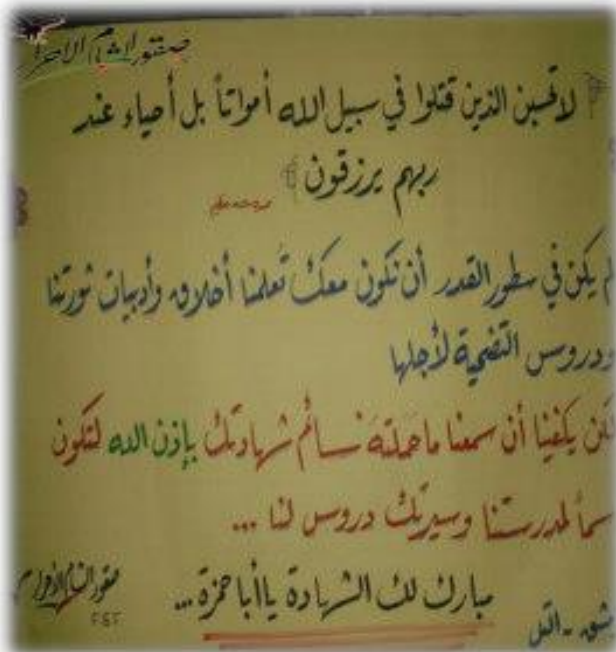 صقور الشام الأحرار
﴿ لا تحسبن الذين قتلوا في سبيل الله أمواتاً بل أحياء عند
ربهم يرزقون ﴾
يكن في سطور القدر أن نكون معك تُعلمنا أخلاق وأدبيات ثورتنا
ودروس التضحية لأجلها
يكفينا أن سمعنا ما حملته نسائم شهادتك بإذن الله لتكون
لمدرستنا وسيرتك دروس لنا ...
مبارك لك الشهادة يا أبا حمزة ...
صقور الشام الأحرار